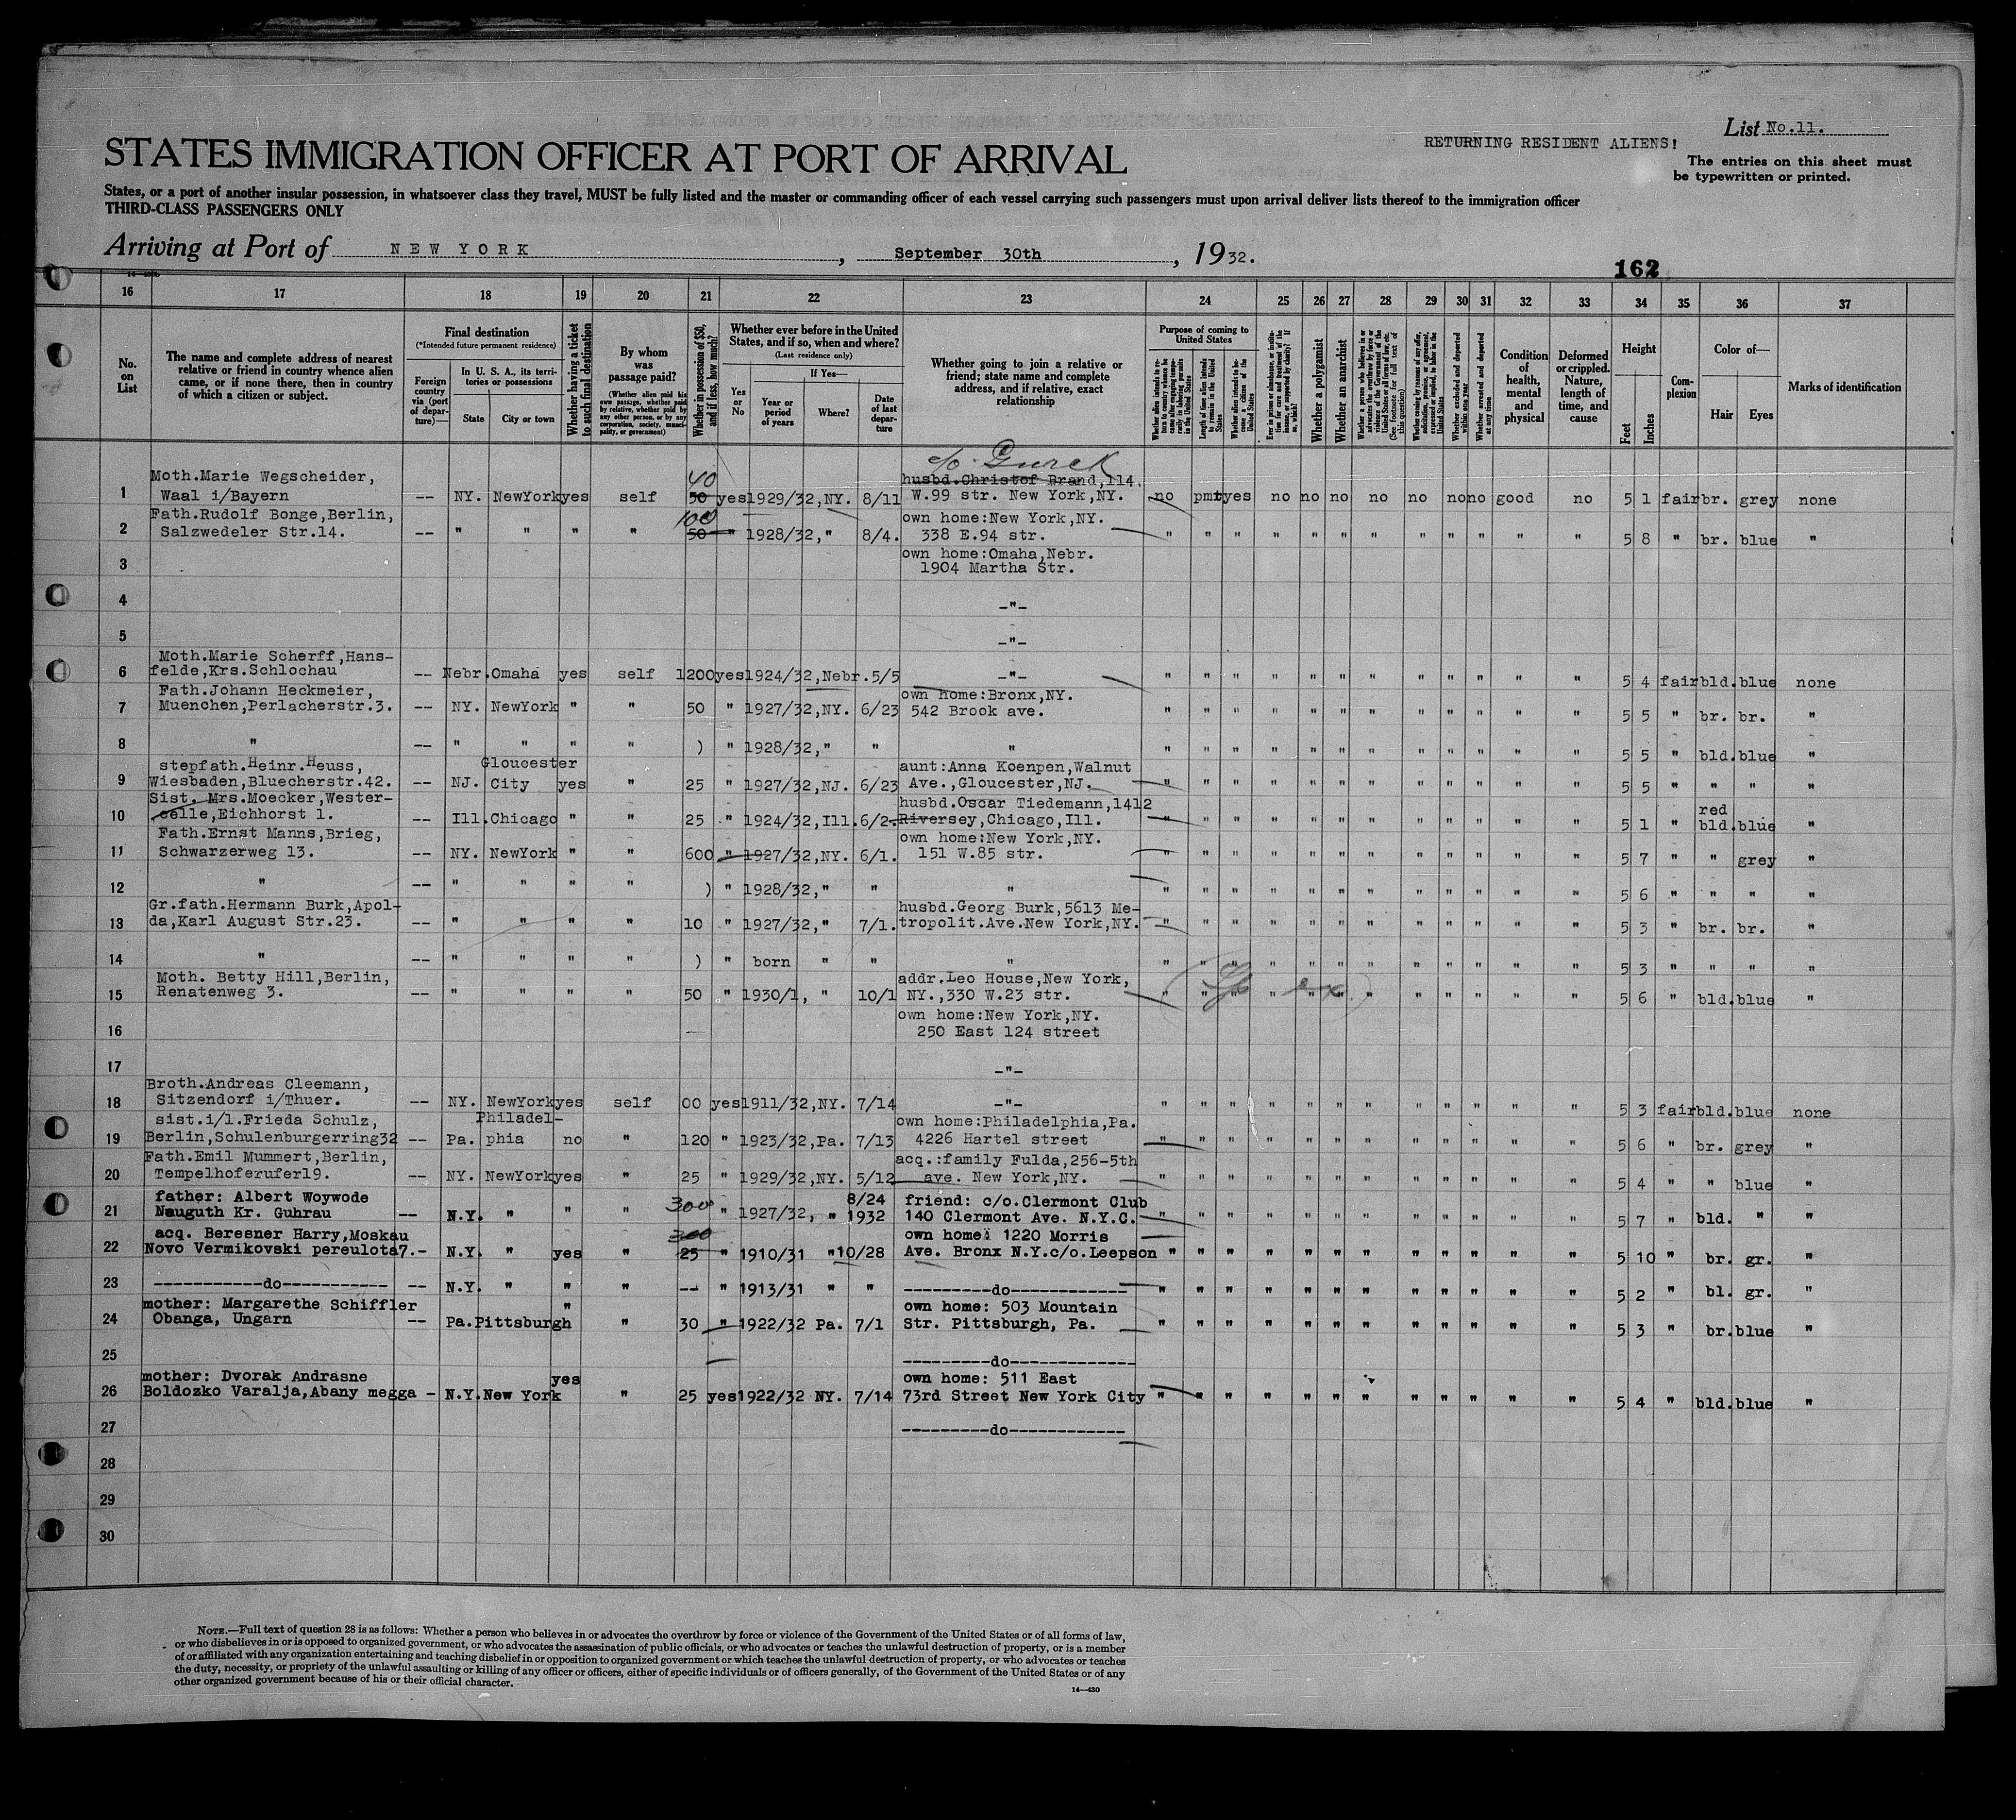 List No.11.
RETURNING RESIDENT ALIENS!
STATES IMMIGRATION OFFICER AT PORT OF ARRIVAL
The entries on this sheet must
be typewritten or printed.
States, or a port of another insular possession, in whatsoever class they travel, MUST be fully listed and the master or commanding officer of each vessel carrying such passengers must upon arrival deliver lists thereof to the immigration officer
THIRD-CLASS PASSENGERS ONLY
Arriving at Port of NEW YORK, September 30th, 1932.
162
16 17 18 19 20 21 22 23 24 25 26 27 28 29 30 31 32 33 34 35 36 37
No. on List
The name and complete address of nearest relative or friend in country whence alien came, or if none there, then in country of which a citizen or subject.
Final destination
(*Intended future permanent residence)
Foreign country via (port of departure)—
In U. S. A., its territories or possessions
State
City or town
Whether having a ticket to such final destination
By whom was passage paid?
(Whether alien paid his own passage, whether paid by relative, whether paid by any other person, or by any corporation, society, municipality, or government)
Whether in possession of $50, and if less, how much?
Whether ever before in the United States, and if so, when and where?
(Last residence only)
Yes or No
If Yes—
Year or period of years
Where?
Date of last departure
Whether going to join a relative or friend; state name and complete address, and if relative, exact relationship
Purpose of coming to United States
Length of time alien intends to remain in the United States
Whether alien intends to become a citizen of the United States
Whether a polygamist
Whether an anarchist
Whether excluded and deported within one year
Whether arrested and deported at any time
Condition of health, mental and physical
Deformed or crippled. Nature, length of time, and cause
Height
Feet
Inches
Complexion
Color of—
Hair
Eyes
Marks of identification
c/o Gurck
1 Moth.Marie Wegscheider, Waal i/Bayern -- NY. NewYork yes self 40 50 yes 1929/32,NY. 8/11 husbd.Christof Brand,114. W.99 str. New York,NY. no pmt yes no no no no no no no good no 5 1 fair br. grey none
2 Fath.Rudolf Bonge,Berlin, Salzwedeler Str.14. -- " " " " 100 50 " 1928/32," 8/4. own home:New York,NY. 338 E.94 str. " " " " " " " " " " " " 5 8 " br. blue "
3 own home:Omaha,Nebr. 1904 Martha Str.
4 -"-
5 -"-
6 Moth.Marie Scherff,Hansfelde,Krs.Schlochau -- Nebr.Omaha yes self 1200 yes 1924/32,Nebr.5/5 -"- " " " " " " " " " " " " 5 4 fair bld.blue none
7 Fath.Johann Heckmeier, Muenchen,Perlacherstr.3. -- NY. NewYork " " 50 " 1927/32,NY. 6/23 own home:Bronx,NY. 542 Brook ave. " " " " " " " " " " " " 5 5 " br. br. "
8 " -- " " " " ) " 1928/32," " " " " " " " " " " " " " " 5 5 " bld.blue "
9 stepfath.Heinr.Heuss, Wiesbaden,Bluecherstr.42. -- NJ. Gloucester City yes " 25 " 1927/32,NJ. 6/23 aunt:Anna Koenpen,Walnut Ave.,Gloucester,NJ. " " " " " " " " " " " " 5 5 " " " "
10 Sist. Mrs.Moecker,Wester- celle,Eichhorst 1. -- Ill.Chicago " " 25 " 1924/32,Ill.6/2. husbd.Oscar Tiedemann,1412 Riversey,Chicago,Ill. " " " " " " " " " " " " 5 1 " red bld.blue "
11 Fath.Ernst Manns,Brieg, Schwarzerweg 13. -- NY. NewYork " " 600 " 1927/32,NY. 6/1. own home:New York,NY. 151 W.85 str. " " " " " " " " " " " " 5 7 " " grey "
12 " -- " " " " ) " 1928/32," " " " " " " " " " " " " " " 5 6 " " " "
13 Gr.fath.Hermann Burk,Apol- da,Karl August Str.23. -- " " " " 10 " 1927/32," 7/1. husbd.Georg Burk,5613 Me- tropolit.Ave.New York,NY. " " " " " " " " " " " " 5 3 " br. br. "
14 " -- " " " " ) " born " " " " " " " " " " " " " " " 5 3 " " " "
15 Moth. Betty Hill,Berlin, Renatenweg 3. -- " " " " 50 " 1930/1, " 10/1 addr.Leo House,New York, NY.,330 W.23 str. " " " " " " " " " " " " 5 6 " bld.blue "
16 own home:New York,NY. 250 East 124 street
17 -"-
18 Broth.Andreas Cleemann, Sitzendorf i/Thuer. -- NY. NewYork yes self 00 yes 1911/32,NY. 7/14 -"- " " " " " " " " " " " " 5 3 fair bld.blue none
19 sist.i/l.Frieda Schulz, Berlin,Schulenburgerring32 -- Pa. Philadel- phia no " 120 " 1923/32,Pa. 7/13 own home:Philadelphia,Pa. 4226 Hartel street " " " " " " " " " " " " 5 6 " br. grey "
20 Fath.Emil Mummert,Berlin, Tempelhoferufer19. -- NY. NewYork yes " 25 " 1929/32,NY. 5/12 acq.:family Fulda,256-5th ave. New York,NY. " " " " " " " " " " " " 5 4 " " blue "
21 father: Albert Woywode Nauguth Kr. Guhrau -- N.Y. " " " 300 " 1927/32, " 8/24 1932 friend: c/o.Clermont Club 140 Clermont Ave. N.Y.C. " " " " " " " " " " " " 5 7 " bld. " "
22 acq. Beresner Harry,Moskau Novo Vermikovski pereulota7.- N.Y. " yes " 300 25 " 1910/31 " 10/28 own home: 1220 Morris Ave. Bronx N.Y.c/o.Leepson " " " " " " " " " " " " 5 10 " br. gr. "
23 -----------do----------- -- N.Y. " " " -- " 1913/31 " " ---------do------------ " " " " " " " " " " " " 5 2 " bl. gr. "
24 mother: Margarethe Schiffler Obanga, Ungarn -- Pa.Pittsburgh " " 30 " 1922/32 Pa. 7/1 own home: 503 Mountain Str. Pittsburgh, Pa. " " " " " " " " " " " " 5 3 " br.blue "
25 ---------do-------------
26 mother: Dvorak Andrasne Boldozko Varalja,Abany megga - N.Y.New York yes " 25 yes 1922/32 NY. 7/14 own home: 511 East 73rd Street New York City " " " " " " " " " " " " 5 4 " bld.blue "
27 ---------do------------
28
29
30
NOTE.—Full text of question 28 is as follows: Whether a person who believes in or advocates the overthrow by force or violence of the Government of the United States or of all forms of law,
or who disbelieves in or is opposed to organized government, or who advocates the assassination of public officials, or who advocates or teaches the unlawful destruction of property, or is a member
of or affiliated with any organization entertaining and teaching disbelief in or opposition to organized government or which teaches the unlawful destruction of property, or who advocates or teaches
the duty, necessity, or propriety of the unlawful assaulting or killing of any officer or officers, either of specific individuals or of officers generally, of the Government of the United States or of any
other organized government because of his or their official character.
14—430